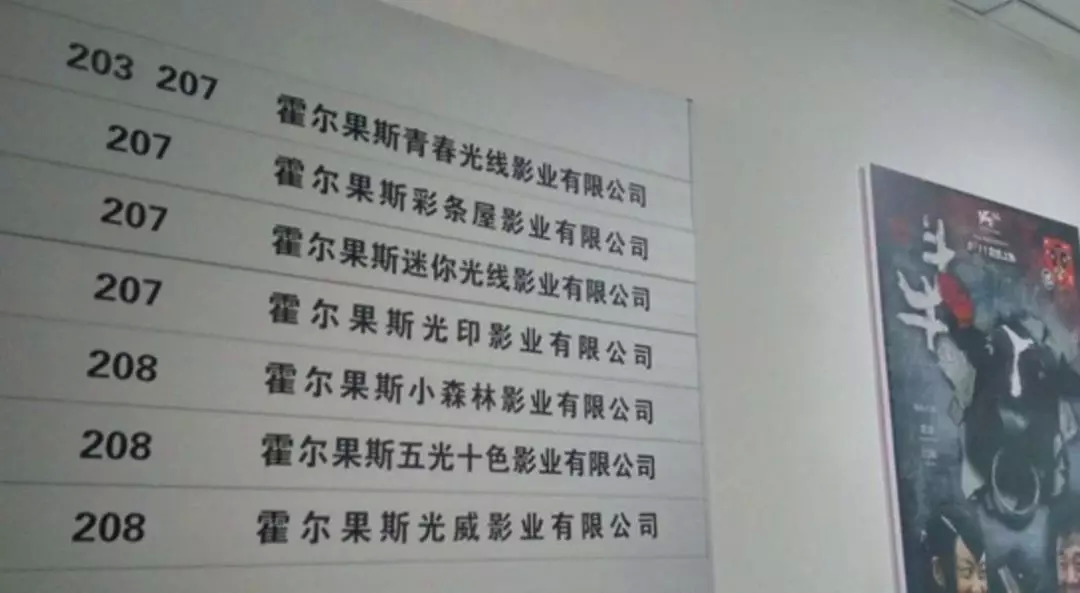 203 207 霍尔果斯青春光线影业有限公司
207 霍尔果斯彩条屋影业有限公司
207 霍尔果斯迷你光线影业有限公司
207 霍尔果斯光印影业有限公司
208 霍尔果斯小森林影业有限公司
208 霍尔果斯五光十色影业有限公司
208 霍尔果斯光威影业有限公司
斗牛